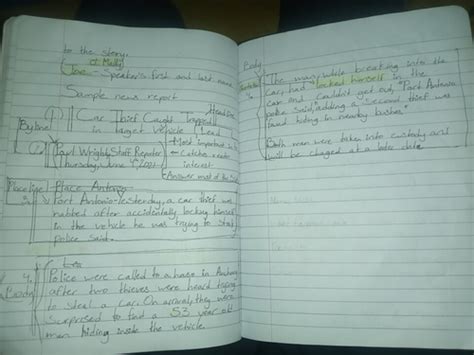 to the story.
O'Mally
Jane - Speaker's first and last name
Sample news report
Headline
Car Thief Caught Trapped
in target vehicle
Lead
Byline
Most important info
Paul Wright, Staff Reporter
Catches reader
Thursday, June
interest
Answer most of the
Placeline
Place Antonio
Port Antonio - Yesterday, a car thief was
nabbed after accidentally locking himself
in the vehicle he was trying to steal
police said.
Body
Police were called to a house in
after two thieves were heard trying
to steal a car. On arrival, they were
surprised to find a 53 year old
man hiding inside the vehicle.
Body
The man, while breaking into the
car, had locked himself in the
car and couldn't get out, "Port Antonio
police said, adding a "second thief was
found hiding in nearby bushes."
Both men were taken into custody and
will be charged at a later date.